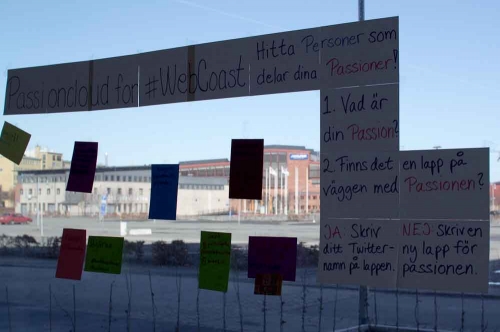 Passioncloud for #WebCoast
Hitta Personer som
delar dina Passioner!
1. Vad är
din Passion?
2. Finns det en lapp på
väggen med Passionen?
JA: Skriv
ditt Twitter-
namn på lappen.
NEJ: Skriv en
ny lapp för
passionen.